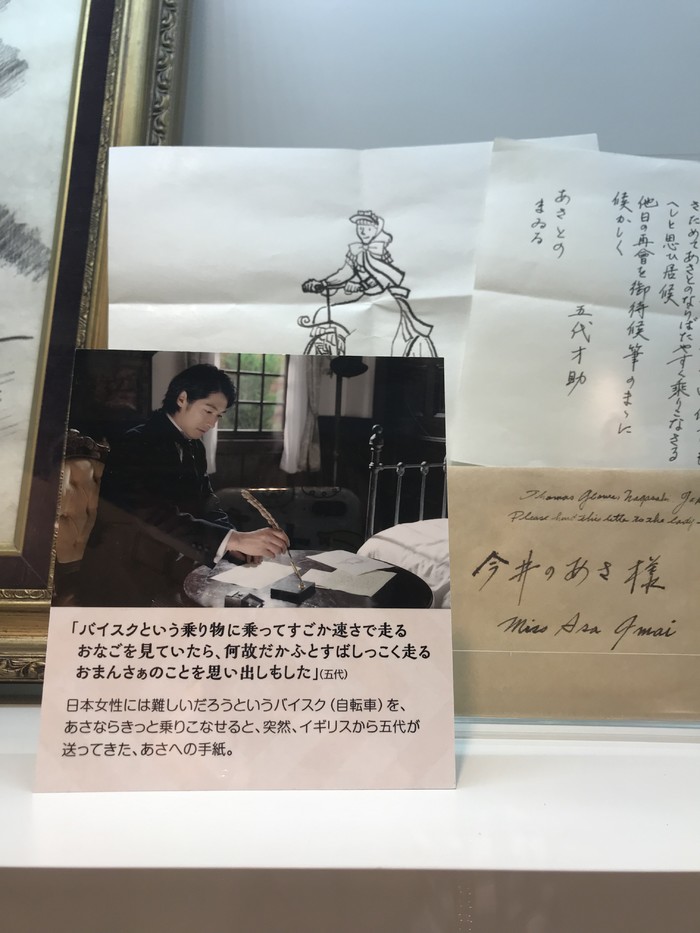 さためてあさとのならばたやすく乗りこなさる
へしと思ひ居候
他日の再會を御待候筆のまゝに
候かしく
五代才助
あさとの
まゐる
Thomas Glover
Please this letter to the lady
今井のあさ様
Miss Asa Imai
「バイスクという乗り物に乗ってすごか速さで走る
おなごを見ていたら、何故だかふとすばしっこく走る
おまんさぁのことを思い出しもした」(五代)
日本女性には難しいだろうというバイスク（自転車）を、
あさならきっと乗りこなせると、突然、イギリスから五代が
送ってきた、あさへの手紙。